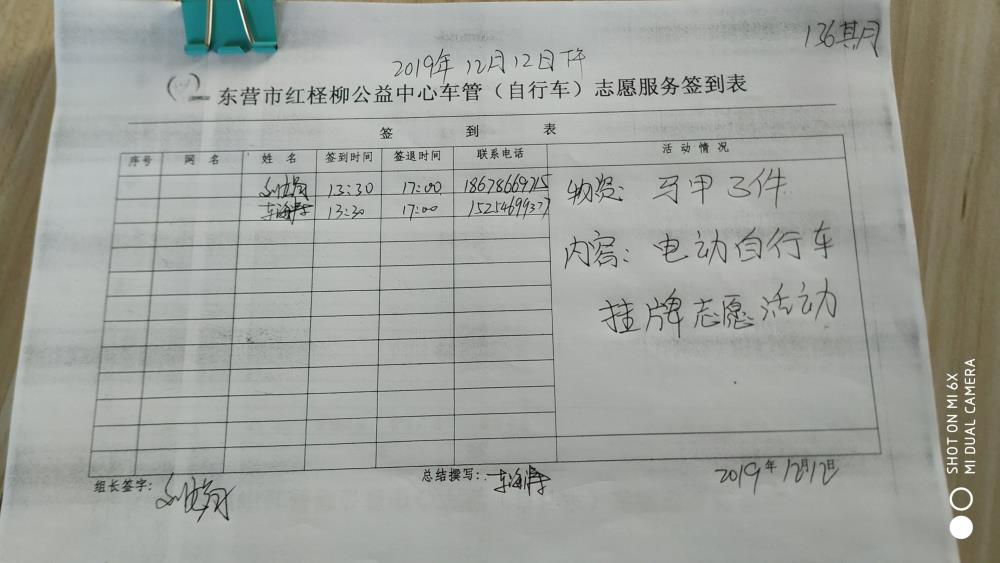 136期
2019年12月12日下午
东营市红柽柳公益中心车管（自行车）志愿服务签到表
签 到 表
序号 网名 姓名 签到时间 签退时间 联系电话 活动情况
13:30 17:00 18678669215
13:30 17:00 15254699377
物资: 马甲3件
内容: 电动自行车
挂牌志愿活动
组长签字:
总结撰写: 车海涛
2019年12月12日
SHOT ON MI 6X
MI DUAL CAMERA